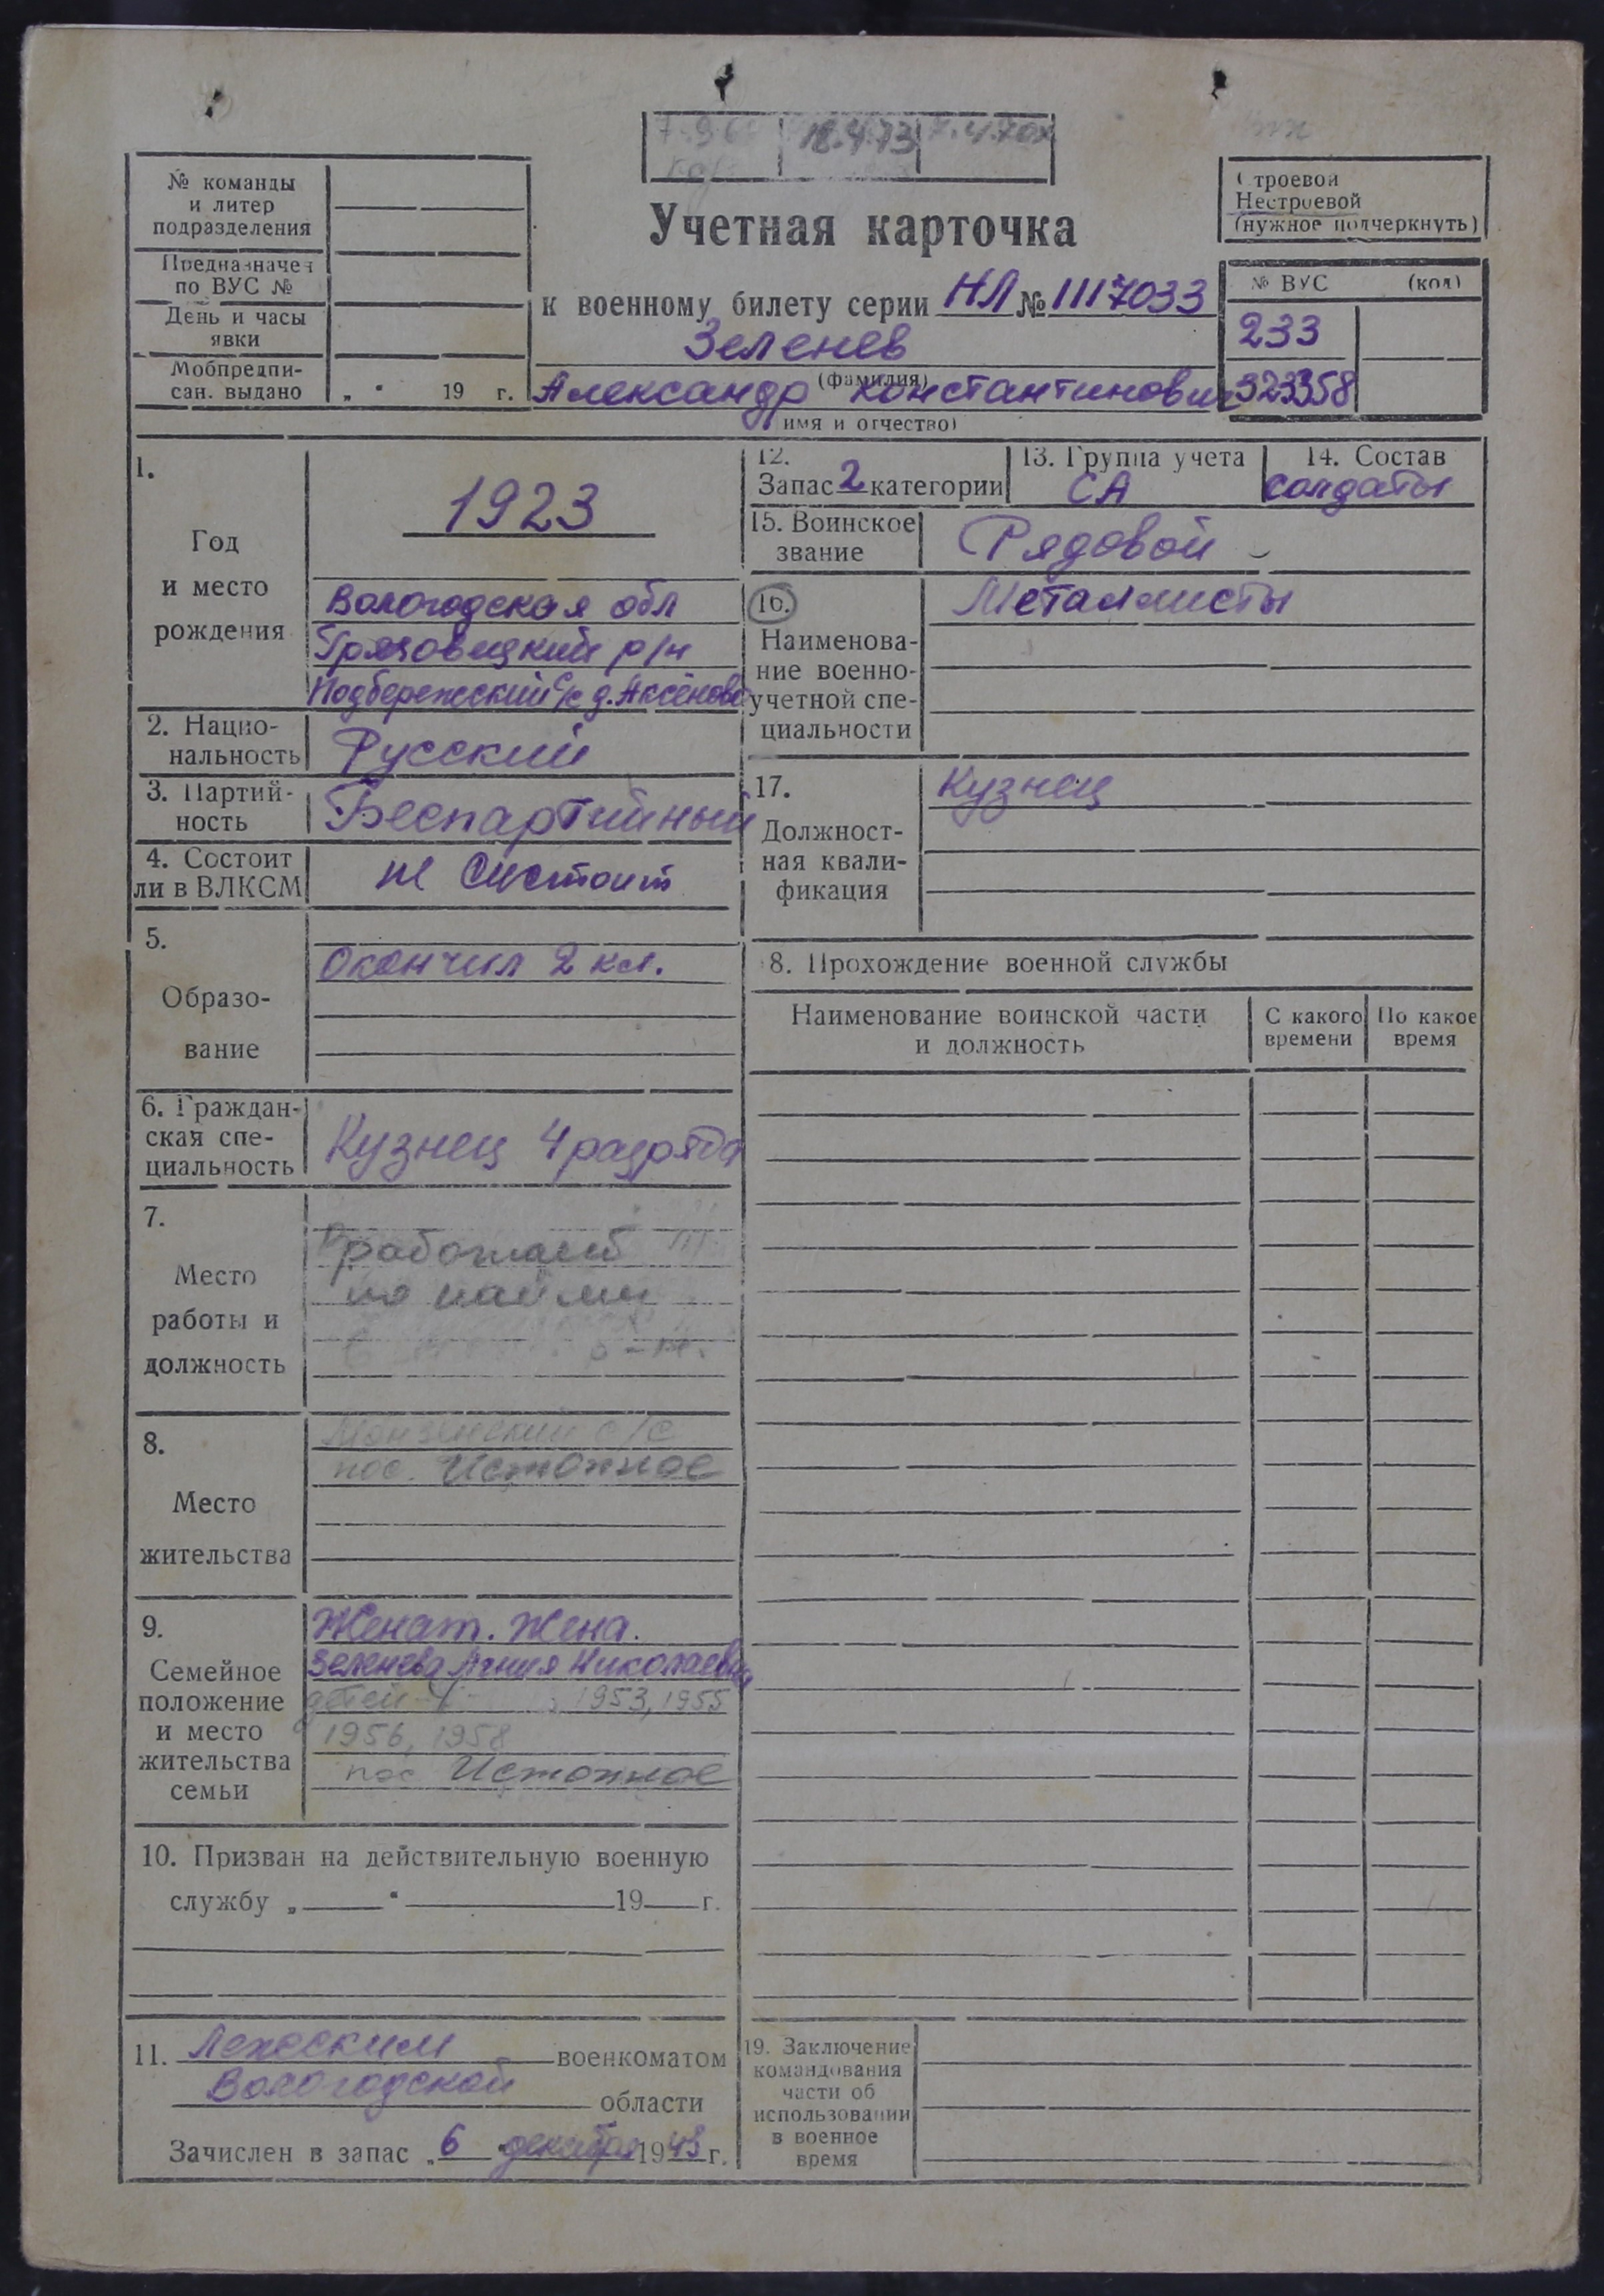 18.4.73
7.4.70
№ команды
и литер
подразделения
Предназначен
по ВУС №
День и часы
явки
Мобпредпи-
сан. выдано „ “ 19 г.
Учетная карточка
к военному билету серии НЛ № 1117033
Зеленев
(фамилия)
Александр Константинович
(имя и отчество)
Строевой
Нестроевой
(нужное подчеркнуть)
№ ВУС (код)
233
323358
1.
Год
и место
рождения
1923
Вологодская обл
Грязовецкий р/н
Подбережский с/с д. Аксёново
2. Нацио-
нальность
Русский
3. Партий-
ность
Беспартийный
4. Состоит
ли в ВЛКСМ
не состоит
5.
Образо-
вание
Окончил 2 кл.
6. Граждан-
ская спе-
циальность
Кузнец 4 разряда
7.
Место
работы и
должность
работает
по найму
8.
Место
жительства
Монзенский с/с
пос. Истопное
9.
Семейное
положение
и место
жительства
семьи
Женат. Жена.
Зеленева Агния Николаевна
детей 1953, 1955
1956, 1958
пос Истопное
10. Призван на действительную военную
службу „ “ 19 г.
11. Лежским военкоматом
Вологодской области
Зачислен в запас „6 декабря 1943 г.
12.
Запас 2 категории
13. Группа учета
СА
14. Состав
солдаты
15. Воинское
звание
Рядовой
16.
Наименова-
ние военно-
учетной спе-
циальности
Металлисты
17.
Должност-
ная квали-
фикация
Кузнец
8. Прохождение военной службы
Наименование воинской части
и должность
С какого
времени
По какое
время
19. Заключение
командования
части об
использовании
в военное
время